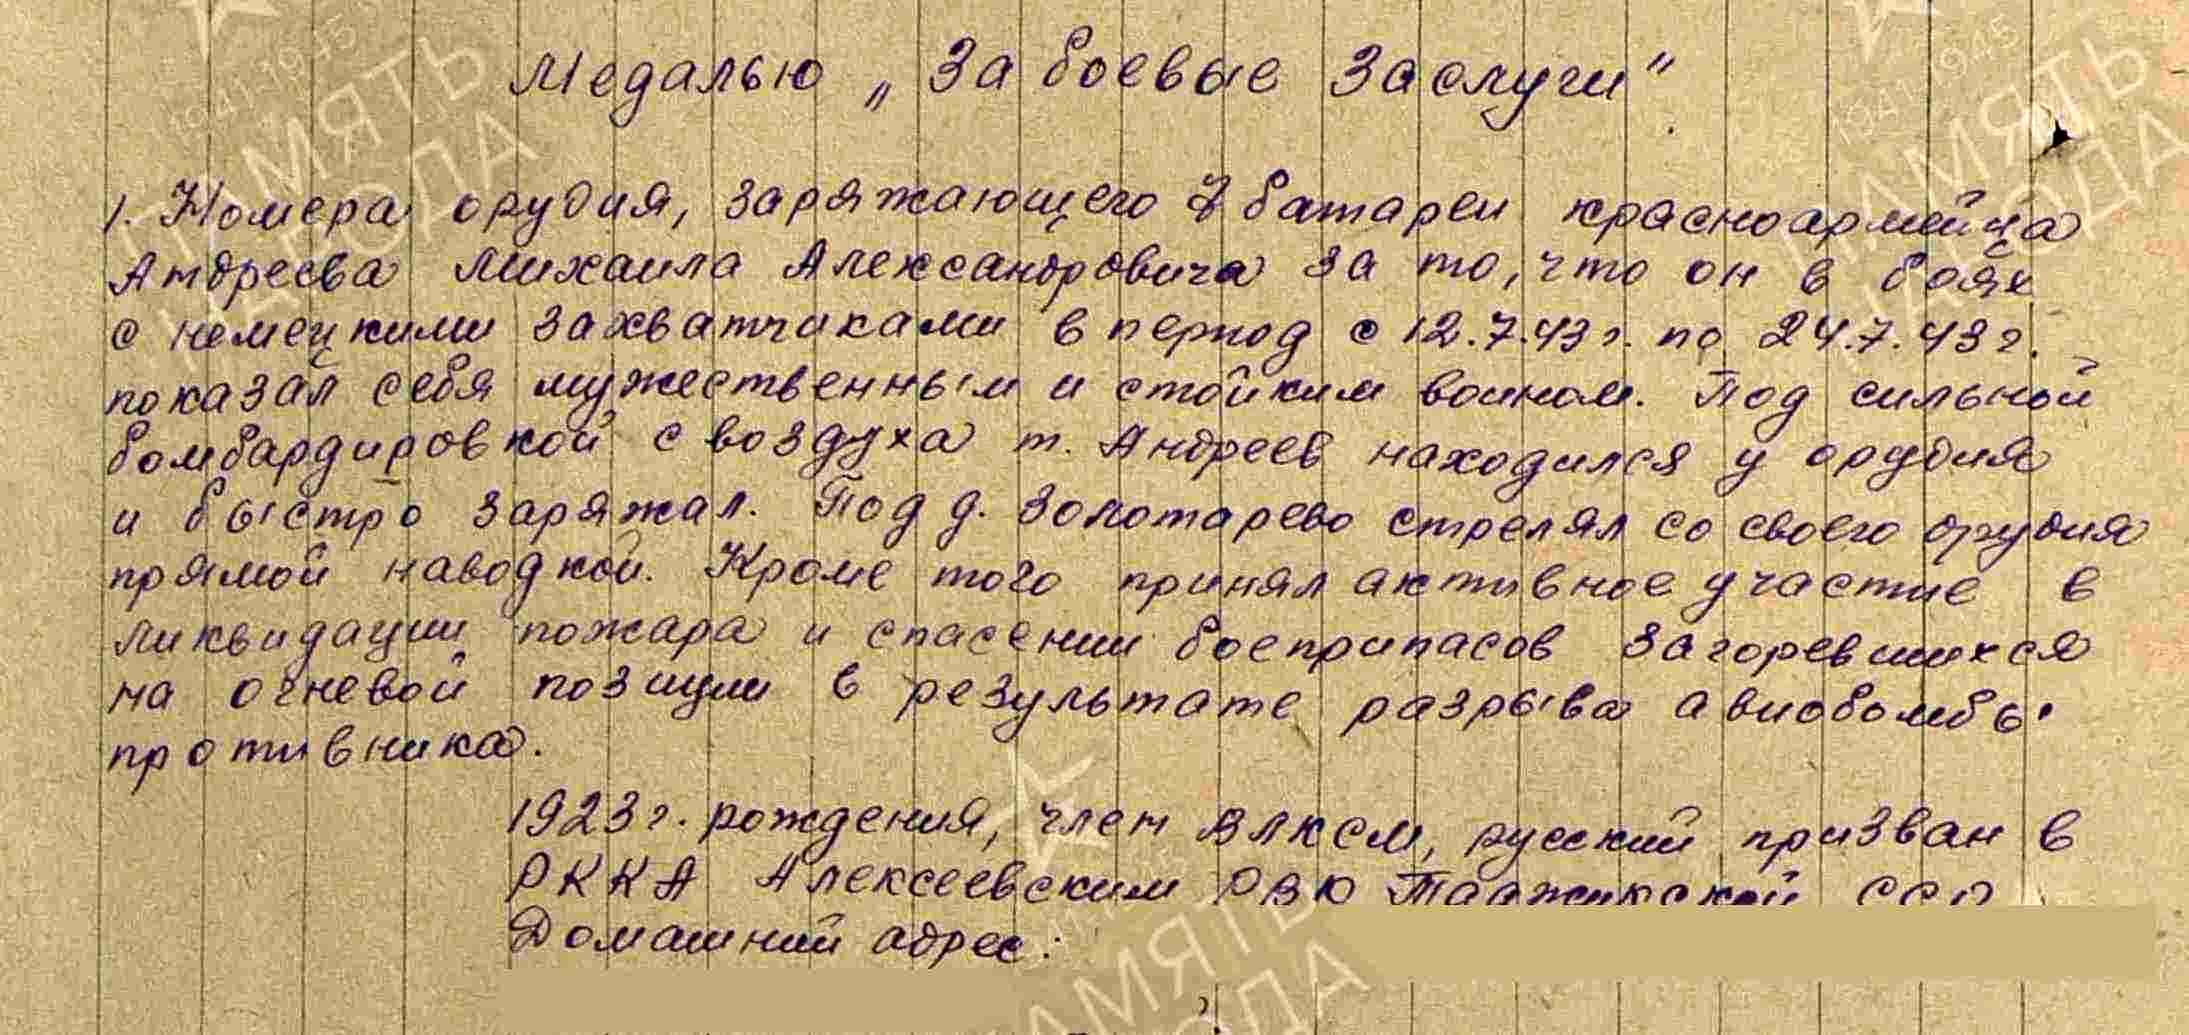 Медалью „За боевые заслуги".
1. Номера орудия, заряжающего 7 батареи красноармейца
Андреева Михаила Александровича за то, что он в боях
с немецкими захватчиками в период с 12.7.43г. по 24.7.43г.
показал себя мужественным и стойким воином. Под сильной
бомбардировкой с воздуха т. Андреев находился у орудия
и быстро заряжал. Под д. Золотарево стрелял со своего орудия
прямой наводкой. Кроме того принял активное участие в
ликвидации пожара и спасении боеприпасов загоревшихся
на огневой позиции в результате разрыва авиобомбы
противника.
1923г. рождения, член ВЛКСМ, русский призван в
РККА Алексеевским РВК Таджикской ССР
Домашний адрес:
ПАМЯТЬ НАРОДА
1941-1945